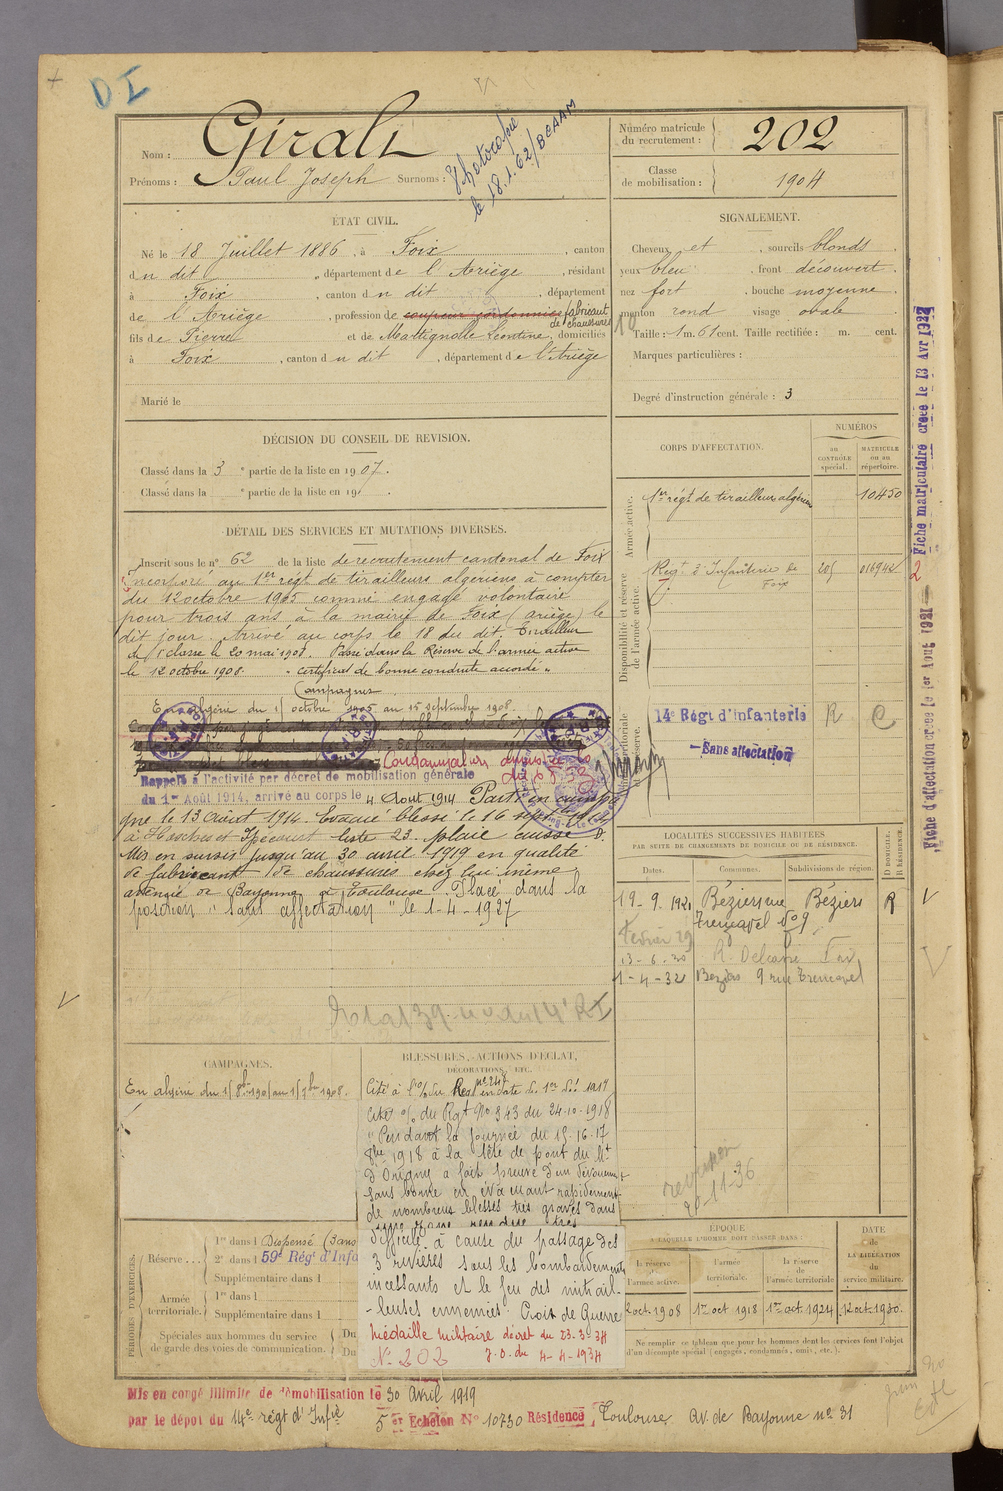 D I
Nom : Giralt
Prénoms : Paul Joseph Surnoms :
Photocopié
le 18.1.62/BCAAM
Numéro matricule
du recrutement : 202
Classe
de mobilisation : 1904
ÉTAT CIVIL.
Né le 18 Juillet 1886, à Foix, canton
dn dit, département de l'Ariège, résidant
à Foix, canton dn dit, département
de l'Ariège, profession de coupeur cordonnier fabricant
de chaussures
fils de Pierre et de Mattignolle Leontine, domiciliés
à Foix, canton dn dit, département de l'Ariège
Marié le
SIGNALEMENT.
Cheveux et, sourcils blonds.
yeux bleu, front découvert.
nez fort, bouche moyenne.
menton rond visage ovale
Taille : 1 m. 61 cent. Taille rectifiée : m. cent.
Marques particulières :
Degré d'instruction générale : 3
DÉCISION DU CONSEIL DE REVISION.
Classé dans la 3e partie de la liste en 1907.
Classé dans la e partie de la liste en 19
CORPS D'AFFECTATION.
NUMÉROS
au
CONTRÔLE
spécial.
MATRICULE
ou au
répertoire.
Armée active.
1er régt de tirailleurs algériens 10450
Disponibilité et réserve
de l'armée active.
Regt d'Infanterie de
Foix 205 016942
14e Régt d'infanterie R C
Sans affectation
DÉTAIL DES SERVICES ET MUTATIONS DIVERSES.
Inscrit sous le n° 62 de la liste de recrutement cantonal de Foix
Incorporé au 1er régt de tirailleurs algériens à compter
du 12 octobre 1905 comme engagé volontaire
pour trois ans à la mairie de Foix (ariège) le
dit jour. Arrivé au corps le 18 du dit Tirailleur
de 1e classe le 20 mai 1908. Passé dans la Réserve de l'armée active
le 12 octobre 1908. "certificat de bonne conduite accordé"
Campagnes
En algérie du 1 octobre 1905 au 15 septembre 1908.
Condamnation amnistiée
Rappelé à l'activité par décret de mobilisation générale
du 1er Août 1914, arrivé au corps le 4 Août 1914 Parti en campa
gne le 13 août 1914. Evacué blessé le 16 sept 1914
liste 23. plaie cuisse D.
Mis en sursis jusqu'au 30 avril 1919 en qualité
de fabricant de chaussures chez lui même
avenue de Bayonne à Toulouse Placé dans la
position "sans affectation" le 1-4-1927
LOCALITÉS SUCCESSIVES HABITÉES
PAR SUITE DE CHANGEMENTS DE DOMICILE OU DE RÉSIDENCE.
Dates. Communes. Subdivisions de région. D DOMICILE. R RÉSIDENCE.
19-9.1921 Béziers rue Béziers R
Trencavel No 9
Fevrier 29
13-6-30 R. Delcassé Foix
1-4-32 Beziers 9 rue Trencavel
revision
20-11-36
CAMPAGNES.
BLESSURES, ACTIONS D'ÉCLAT,
DÉCORATIONS, ETC.
Cité à l'o/ du Regt n° 247 en date
Cité o/ du Rgt No 343 du 24-10-1918
"Pendant la journée du 15-16-17
8bre 1918 à la tête de pont du Mt
d'Origny a fait preuve d'un dévouement
sans borne en évacuant rapidement
de nombreux blessés très graves dans
difficile à cause du passage des
3 rivières sous les bombardements
incessants et le feu des mitrail-
-leuses ennemies. Croix de Guerre
Médaille militaire décret du 23.3.34
N° 202 J.O. du 4-4-1934
PÉRIODES D'EXERCICES.
Réserve... 1re dans l Dispensé (Sans
2e dans l 59e Régt d'Infa
Supplémentaire dans l
Armée
territoriale. 1re dans l
Supplémentaire dans l
Spéciales aux hommes du service
de garde des voies de communication. Du
Du
ÉPOQUE
À LAQUELLE L'HOMME DOIT PASSER DANS :
la réserve
de
l'armée active.
l'armée
territoriale.
la réserve
de
l'armée territoriale
DATE
de
LA LIBÉRATION
du
service militaire.
2 oct. 1908 1er oct 1918 1er oct. 1924 12 oct. 1930.
Ne remplir ce tableau que pour les hommes dont les services font l'objet
d'un décompte spécial (engagés, condamnés, omis, etc.).
Mis en congé illimité de démobilisation le 30 Avril 1919
par le dépôt du 14e régt d'Infie 5er Echelon N° 10730 Résidence Toulouse. av. de Bayonne n° 31
Fiche matriculaire créée le 13 Avr 1922
Fiche d'affectation créée le 1er Août 1921